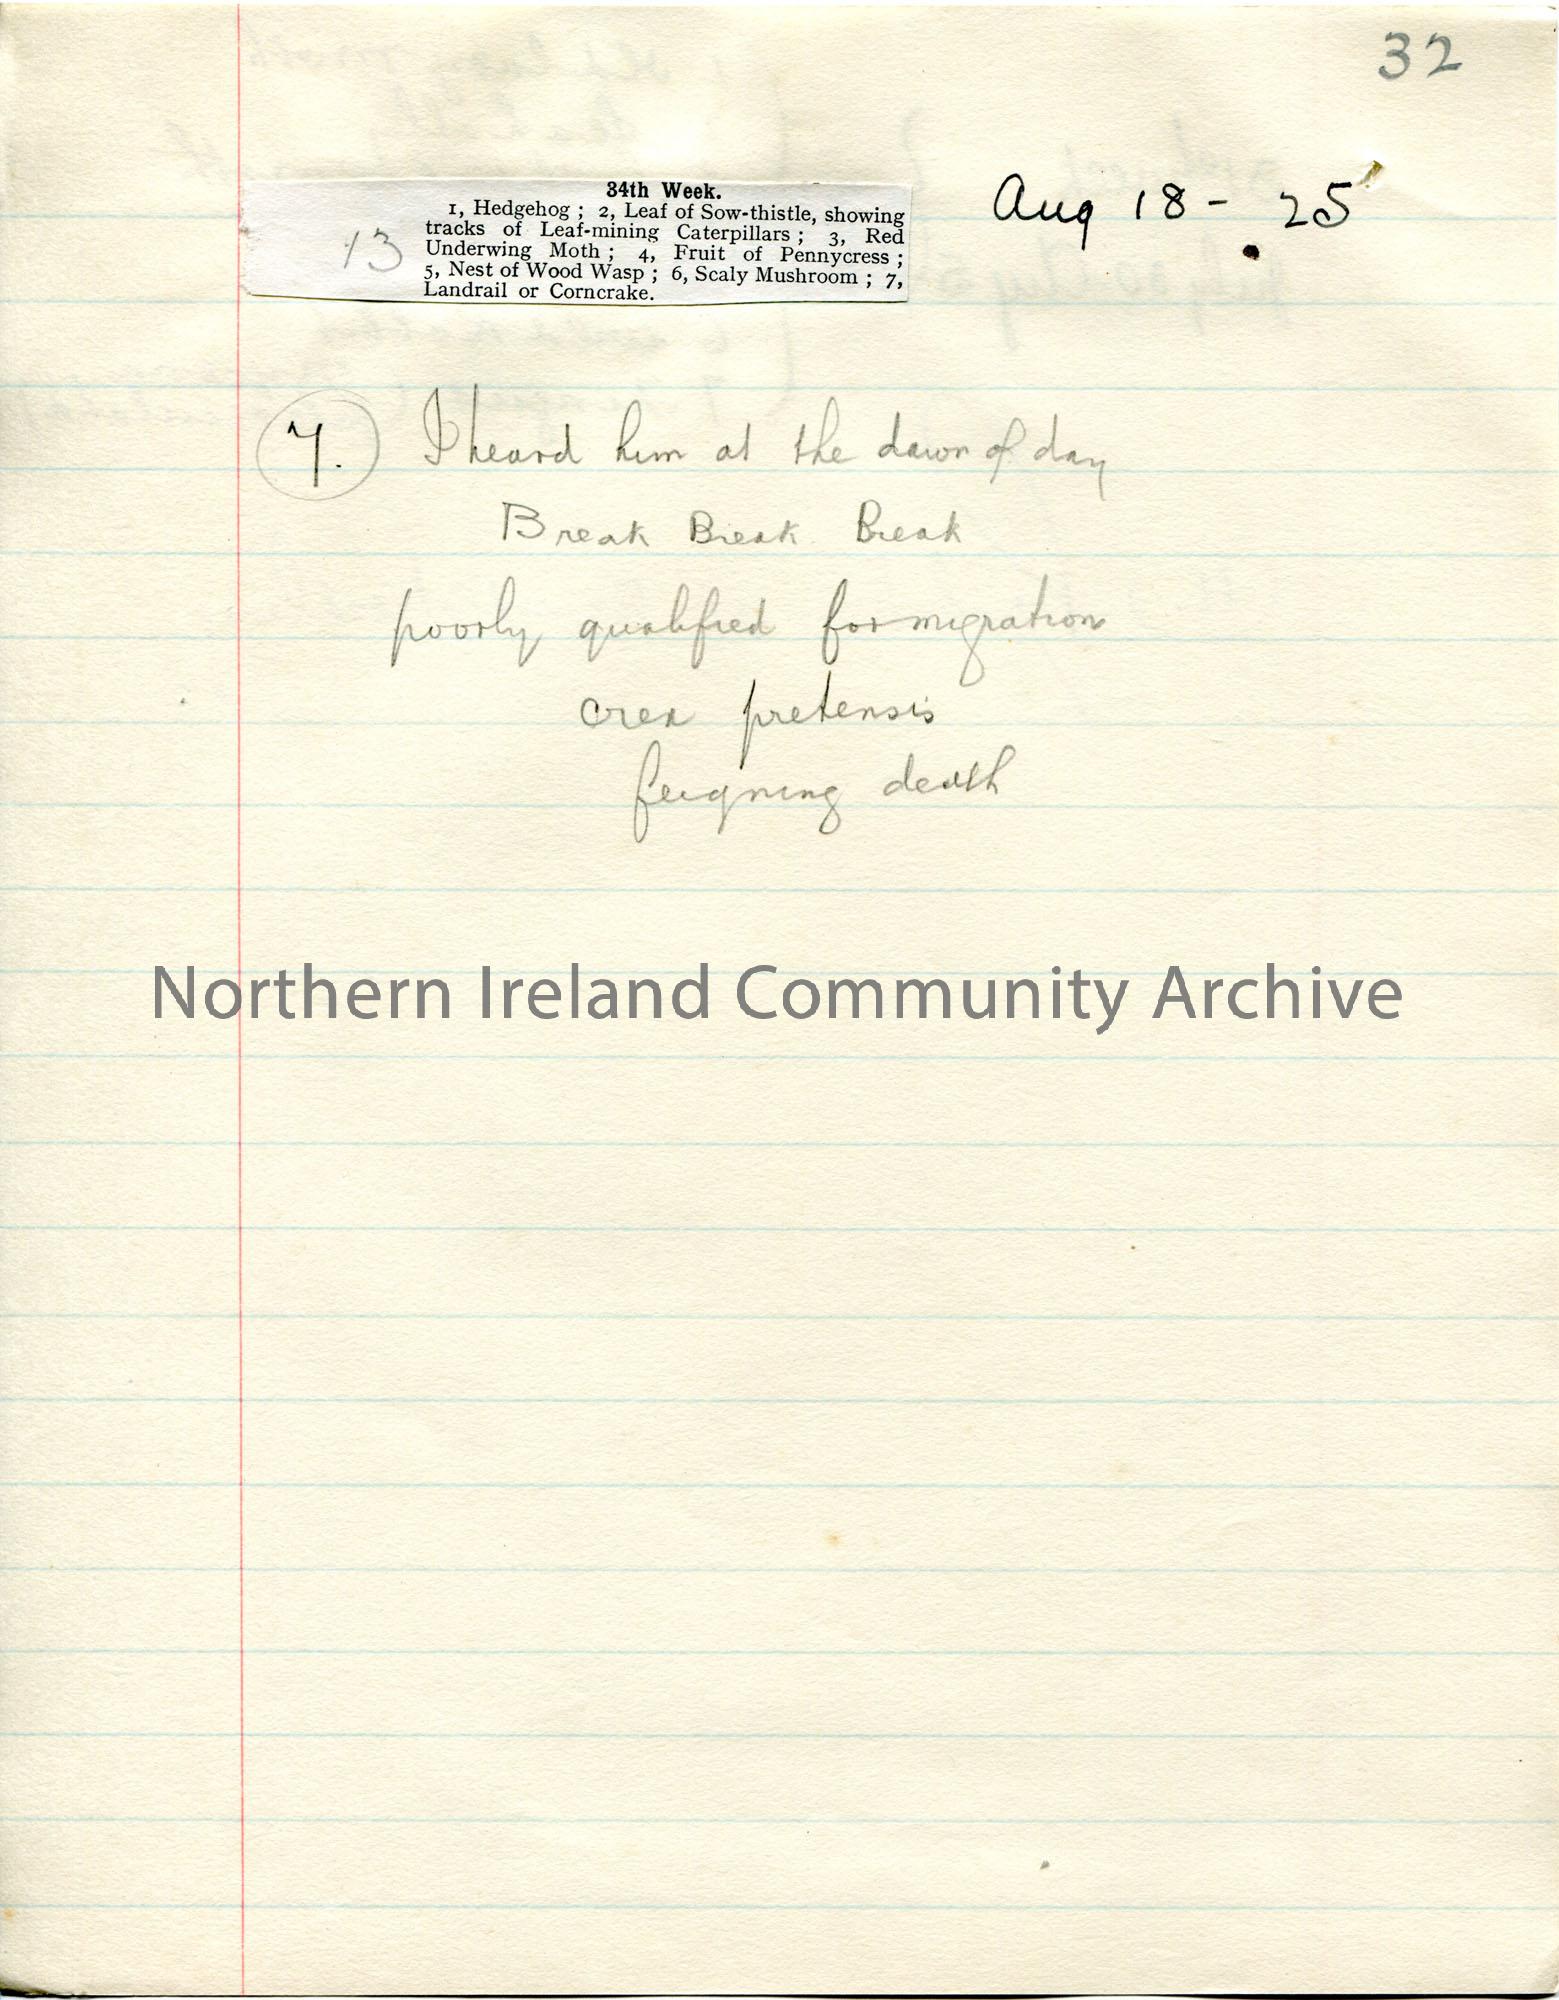 32
Aug 18 - 25
34th Week.
1, Hedgehog ; 2, Leaf of Sow-thistle, showing
tracks of Leaf-mining Caterpillars ; 3, Red
Underwing Moth ; 4, Fruit of Pennycress ;
5, Nest of Wood Wasp ; 6, Scaly Mushroom ; 7,
Landrail or Corncrake.
13
7. I heard him at the dawn of day
Break Break Break
poorly qualified for migration
crex pretensis
feigning death
Northern Ireland Community Archive